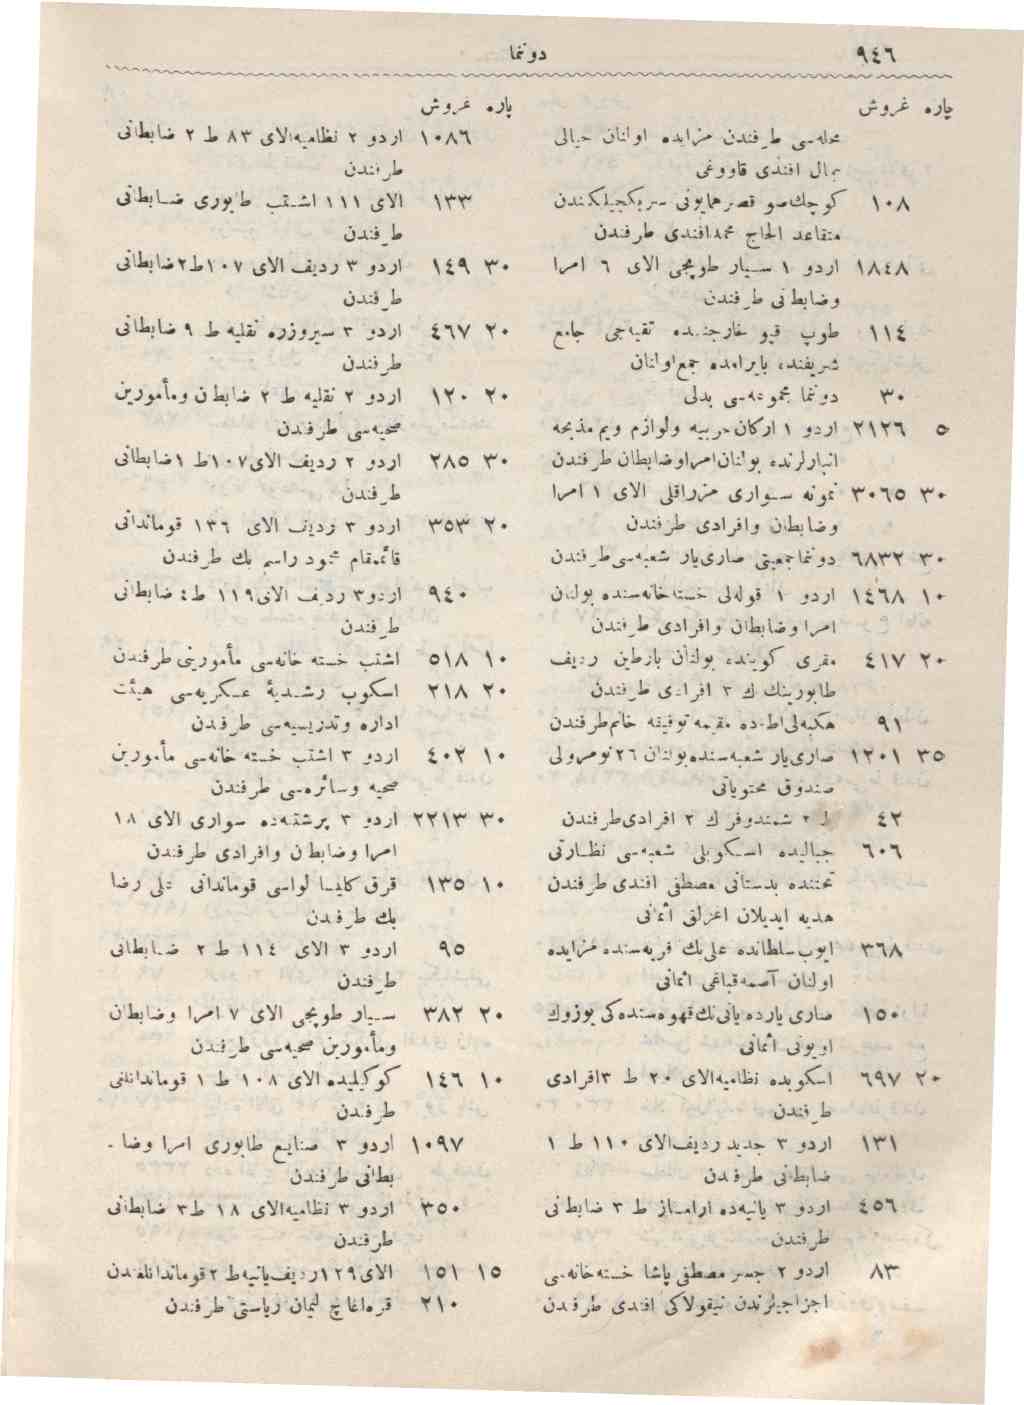 ٩٤٦ دونما
پاره غروش
محله‌سی طرفندن مزایده اولنان خیالی
جمال افندی قاووغی
١٠٨ كوچك‌صو قصرهمایونی سربكجیلكندن
متقاعد الحاج محمدافندی طرفندن
١٨٤٨ اردو ١ سیار طوپجی الای ٦ امرا
وضابطانی طرفندن
١١٤ طوپ قپو خارجنده تقیه‌جی جامع
شریفنده بایرامده جمع‌اولنان
٣٠ دونما مجموعه‌سی بدلی
٥ ٢١٢٦ اردو ١ اركان‌حربیه ولوازم ویم مذبحه
انبارلرنده بولنان‌امراوضابطان طرفندن
٣٠ ٣٠٦٥ نمونه سواری مزراقلی الای ١ امرا
وضابطان وافرادی طرفندن
٣٠ ٦٨٣٢ دونماجمعیتی صاری‌یار شعبه‌سی‌طرفندن
١٠ ١٤٦٨ اردو ١ قوله‌لی خسته‌خانه‌سنده بولنان
امرا وضابطان وافرادی طرفندن
٢٠ ٤١٧ مقری كوینده بولنان بارطین ردیف
طابورینك ك ٣ افرادی طرفندن
٩١ هكبه‌لی‌اطه‌ده مقیمه توفیقه خانم‌طرفندن
٣٥ ١٢٠١ صاری‌یار شعبه‌سنده‌بولنان ٢٦نومرولی
صندوق محتویاتی
٤٢ ط ٢ شمندوفر ك ٢ افرادی‌طرفندن
٦٠٦ جبالیده اسكوبلی شعبه‌سی نظارتی
تحتنده بدستانی مصطفی افندی طرفندن
هدیه ایدیلان اغزلق اثمانی
٣٦٨ ایوب‌سلطانده علی‌بك قریه‌سنده مزایده
اولنان آصمه‌قباغی اثمانی
١٥٠ صاری یارده یانی‌نك‌قهوه‌سنده‌كی یوزوك
اویونی اثمانی
٢٠ ٦٩٧ اسكوبده نظامیه‌الای ٢٠ ط ٣افرادی
طرفندن
١٣١ اردو ٣ جدید ردیف‌الای ١١٠ ط ١
ضابطانی طرفندن
٤٥٦ اردو ٣ یانیه‌ده ارامـاز ط ٣ ضابطانی
طرفندن
٨٣ اردو ٢ جسر مصطفی پاشا خسته‌خانه‌سی
اجزاجیلرندن نیقولاكی افندی طرفندن
پاره غروش
١٠٨٦ اردو ٢ نظامیه‌الای ٨٣ ط ٢ ضابطانی
طرفندن
١٣٣ الای ١١١ اشتب طابوری ضابطانی
طرفندن
٣٠ ١٤٩ اردو ٣ ردیف الای ١٠٧ط٢ضابطانی
طرفندن
٢٠ ٤٦٧ اردو ٣ سیروزره نقلیه ط ٩ ضابطانی
طرفندن
٢٠ ١٢٠ اردو ٢ نقلیه ط ٢ ضابطان ومأمورین
صحیه‌سی طرفندن
٣٠ ٢٨٥ اردو ٢ ردیف الای١٠٧ط ١ضابطانی
طرفندن
٢٠ ٣٥٣ اردو ٣ ردیف الای ١٣٦ قوماندانی
قائممقام محمود راسم بك طرفندن
٩٤٠ اردو٣ ردیف الای١١٩ ط٤ ضابطانی
طرفندن
١٠ ٥١٨ اشتب خسته خانه‌سی مأمورینی طرفندن
٢٠ ٢١٨ اسكوب رشدیهٔ عسكریه‌سی هیئت
اداره وتدریسیه‌سی طرفندن
١٠ ٤٠٢ اردو ٣ اشتب خسته خانه‌سی مأمورین
صحیه وسائره‌سی طرفندن
٣٠ ٢٢١٣ اردو ٣ پرشتنه‌ده سواری الای ١٨
امرا وضابطان وافرادی طرفندن
١٠ ١٣٥ قرق كلیسا لواسی قوماندانی علی رضا
بك طرفندن
٩٥ اردو ٣ الای ١١٤ ط ٢ ضابطانی
طرفندن
٢٠ ٣٨٢ سیار طوپجی الای ٧ امرا وضابطان
ومأمورین صحیه‌سی طرفندن
١٠ ١٤٦ كوكیلیده الای ١٠٨ ط ١ قوماندانلغی
طرفندن
١٠٩٧ اردو ٣ صنایع طابوری امرا وضا-
بطانی طرفندن
٣٥٠ اردو ٣ نظامیه‌الای ١٨ ط٣ ضابطانی
طرفندن
١٥ ١٥١ الای١٢٩ردیف‌یانیه‌ط ٢قوماندانلغندن
٢١٠ قره‌اغاج لیمان ریاستی طرفندن